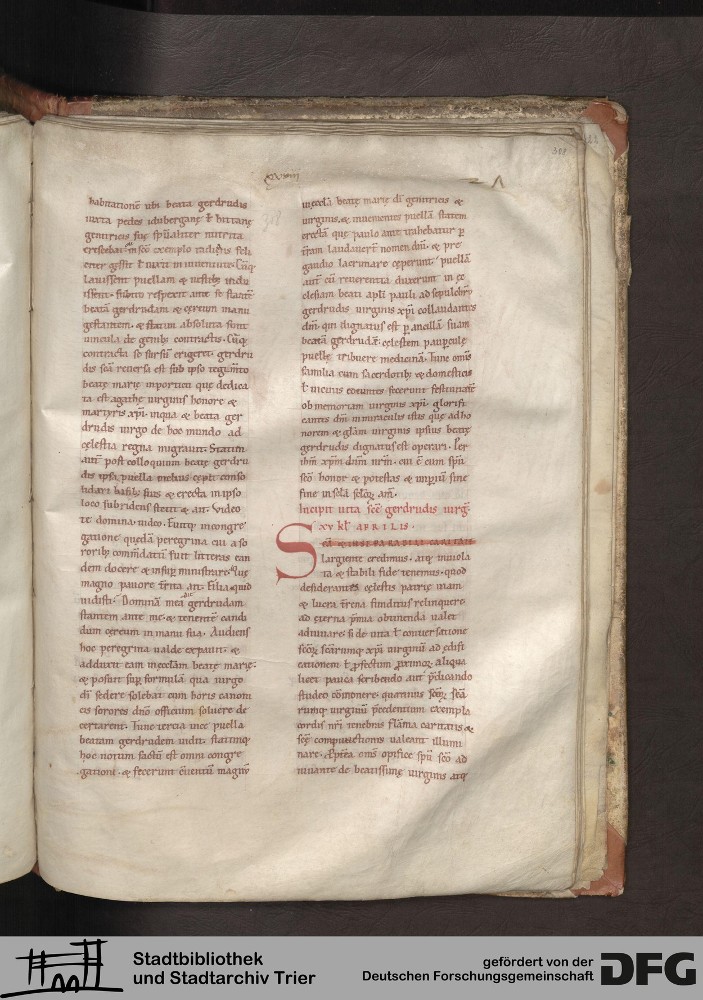 xviiii
301
habitatione ubi beata gerdrudis
iuxta pedes
genitricis suę spiritaliter nutrita
exemplo
Cūq;
lauissent puellam & uestibꝫ indu
issent. subito respexit ante se stantē
beatā gerdrudam & cereum manu
gestantem. & statim absoluta sunt
uincula de genibꝫ contractis. Cūq;
contracta se sursū erigeret gerdru
dis scā reuersa est sub ipso tegimto
beatę marię inporticu quę dedica
ta est agathę uirginis honore &
martyris xpi. inqua & beata ger
drudis uirgo de hoc mundo ad
cęlestia regna migrauit. Statim
aut̄ post colloquium beatę gerdru
dis ipsa puella melius cępit conso
lidari & erecta in ipso
loco subridens stetit & ait. Video
te domina. uideo. Fuitq; incongre
gatione quędā peregrina cui a so
roribꝫ cōmdatū fuit litteras ean
dem docere & insup ministrare.
magno pauore t̄rita ait. Filia quid
uidisti. Dominā meā gerdrudam
stantem ante me. & tenentē candi
dum cereum in manu sua. Audiens
hoc peregrina ualde expauit. &
adduxit eam inęcclam beatę marię.
& posuit sup formulā qua uirgo
di sedere solebat cum horis canoni
cis sorores dno officium soluere de
certarent. Tunc tercia uice puella
beatam gerdrudem uidit. statimq;
hoc notum factū est omni congre
gationi. & fecerunt cuentū magnū
inęccla beatę marię di genitricis &
uirginis. & inuenientes puellā statem
erectā que paulo ante trahebatur p
t̄ram laudauert̄ nomen dni. & pre
gaudio lacrimare cęperunt. puellā
aut̄ cū reuerentia duxerunt in ęc
clesiam beati apli pauli ad sepulchrū
gerdrudis uirginis xpi collaudantes
dm̄. qui dignatus est p ancillā suam
beatā gerdrudā. cęlestem paupculę
puellę tribuere medicinā. Tunc om̄s
familia cum sacerdotibꝫ & domesticis
ł uicinis coeuntes fecerunt festiuitatē
ob memoriam uirginis xpi. glorifi
cantes dm̄ in miraculis istis quę adho
norem & glam uirginis ipsius beatę
gerdrudis dignatus est operari. Per
ihm̄ xpm̄ dnm̄ nrm̄. cui ē cum spū
scō honor & potestas & impiū sine
fine in scla sclor̄. am̄.
Incipit uita scę gerdrudis uirḡ.
XV KL APRILIS.
Largiente credimus. atq; inuiola
ta & stabili fide tenemus. quod
desiderantes cęlestis patrię uiam
& lucra t̄rena funditus relinquere.
ad ęterna pmia obtinenda ualet
adiuuare. si de uita ł conuersatione
scōr̄ scārumq; xpi uirginū ad edifi
cationem ł pfectum pximor̄. aliqua
licet pauca scribendo aut pdicando
studeo cōmponere. quatinus scōr̄ scā
rumq; uirginū pcedentium exempla
cordis nri tenebras flāma caritatis &
scę compunctionis ualeant illumi
nare. om̄s opifice spū scō ad
iuuante de beatissimę uirginis atq;
Stadtbibliothek
und Stadtarchiv Trier
gefördert von der
Deutschen Forschungsgemeinschaft
DFG